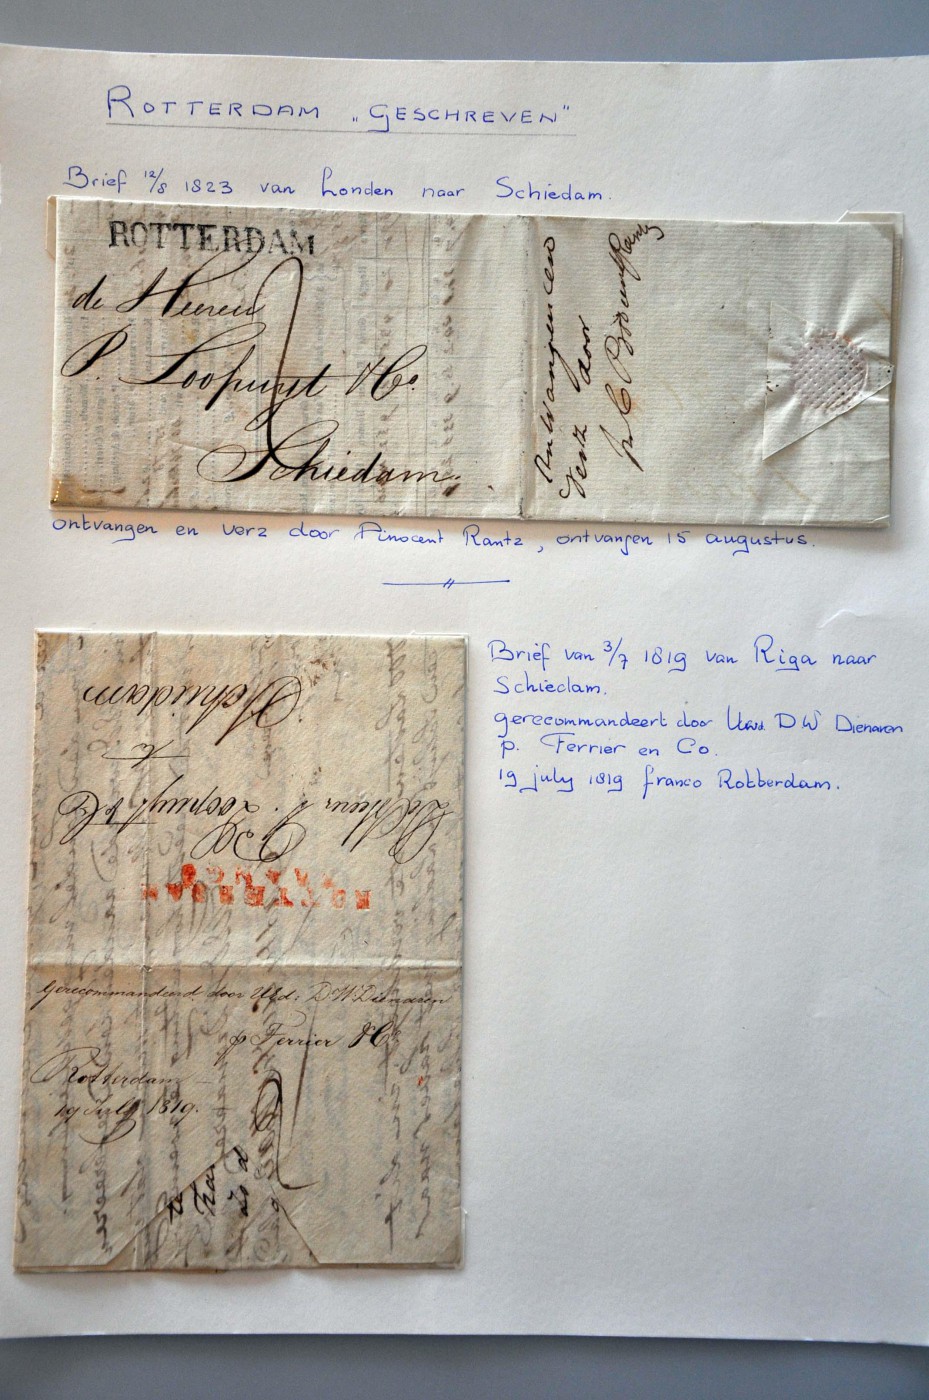 ROTTERDAM „GESCHREVEN"
Brief 12/8 1823 van Londen naar Schiedam.
ROTTERDAM
de Heeren
P. Loopuyt & Co.
Schiedam.
door
ontvangen en verz door Finocent Rantz, ontvangen 15 augustus.
Brief van 3/7 1819 van Riga naar
Schiedam.
gerecommandeert door Uwd. DW Dienaren
p. Ferrier en Co.
19 july 1819 franco Rotterdam.
Schiedam
te
De Heeren P. Loopuyt & Co
ROTTERDAM
FRANCO
Gerecommandeerd door Uld: DWDienaren
p Ferrier & Co
Rotterdam
19 July 1819.